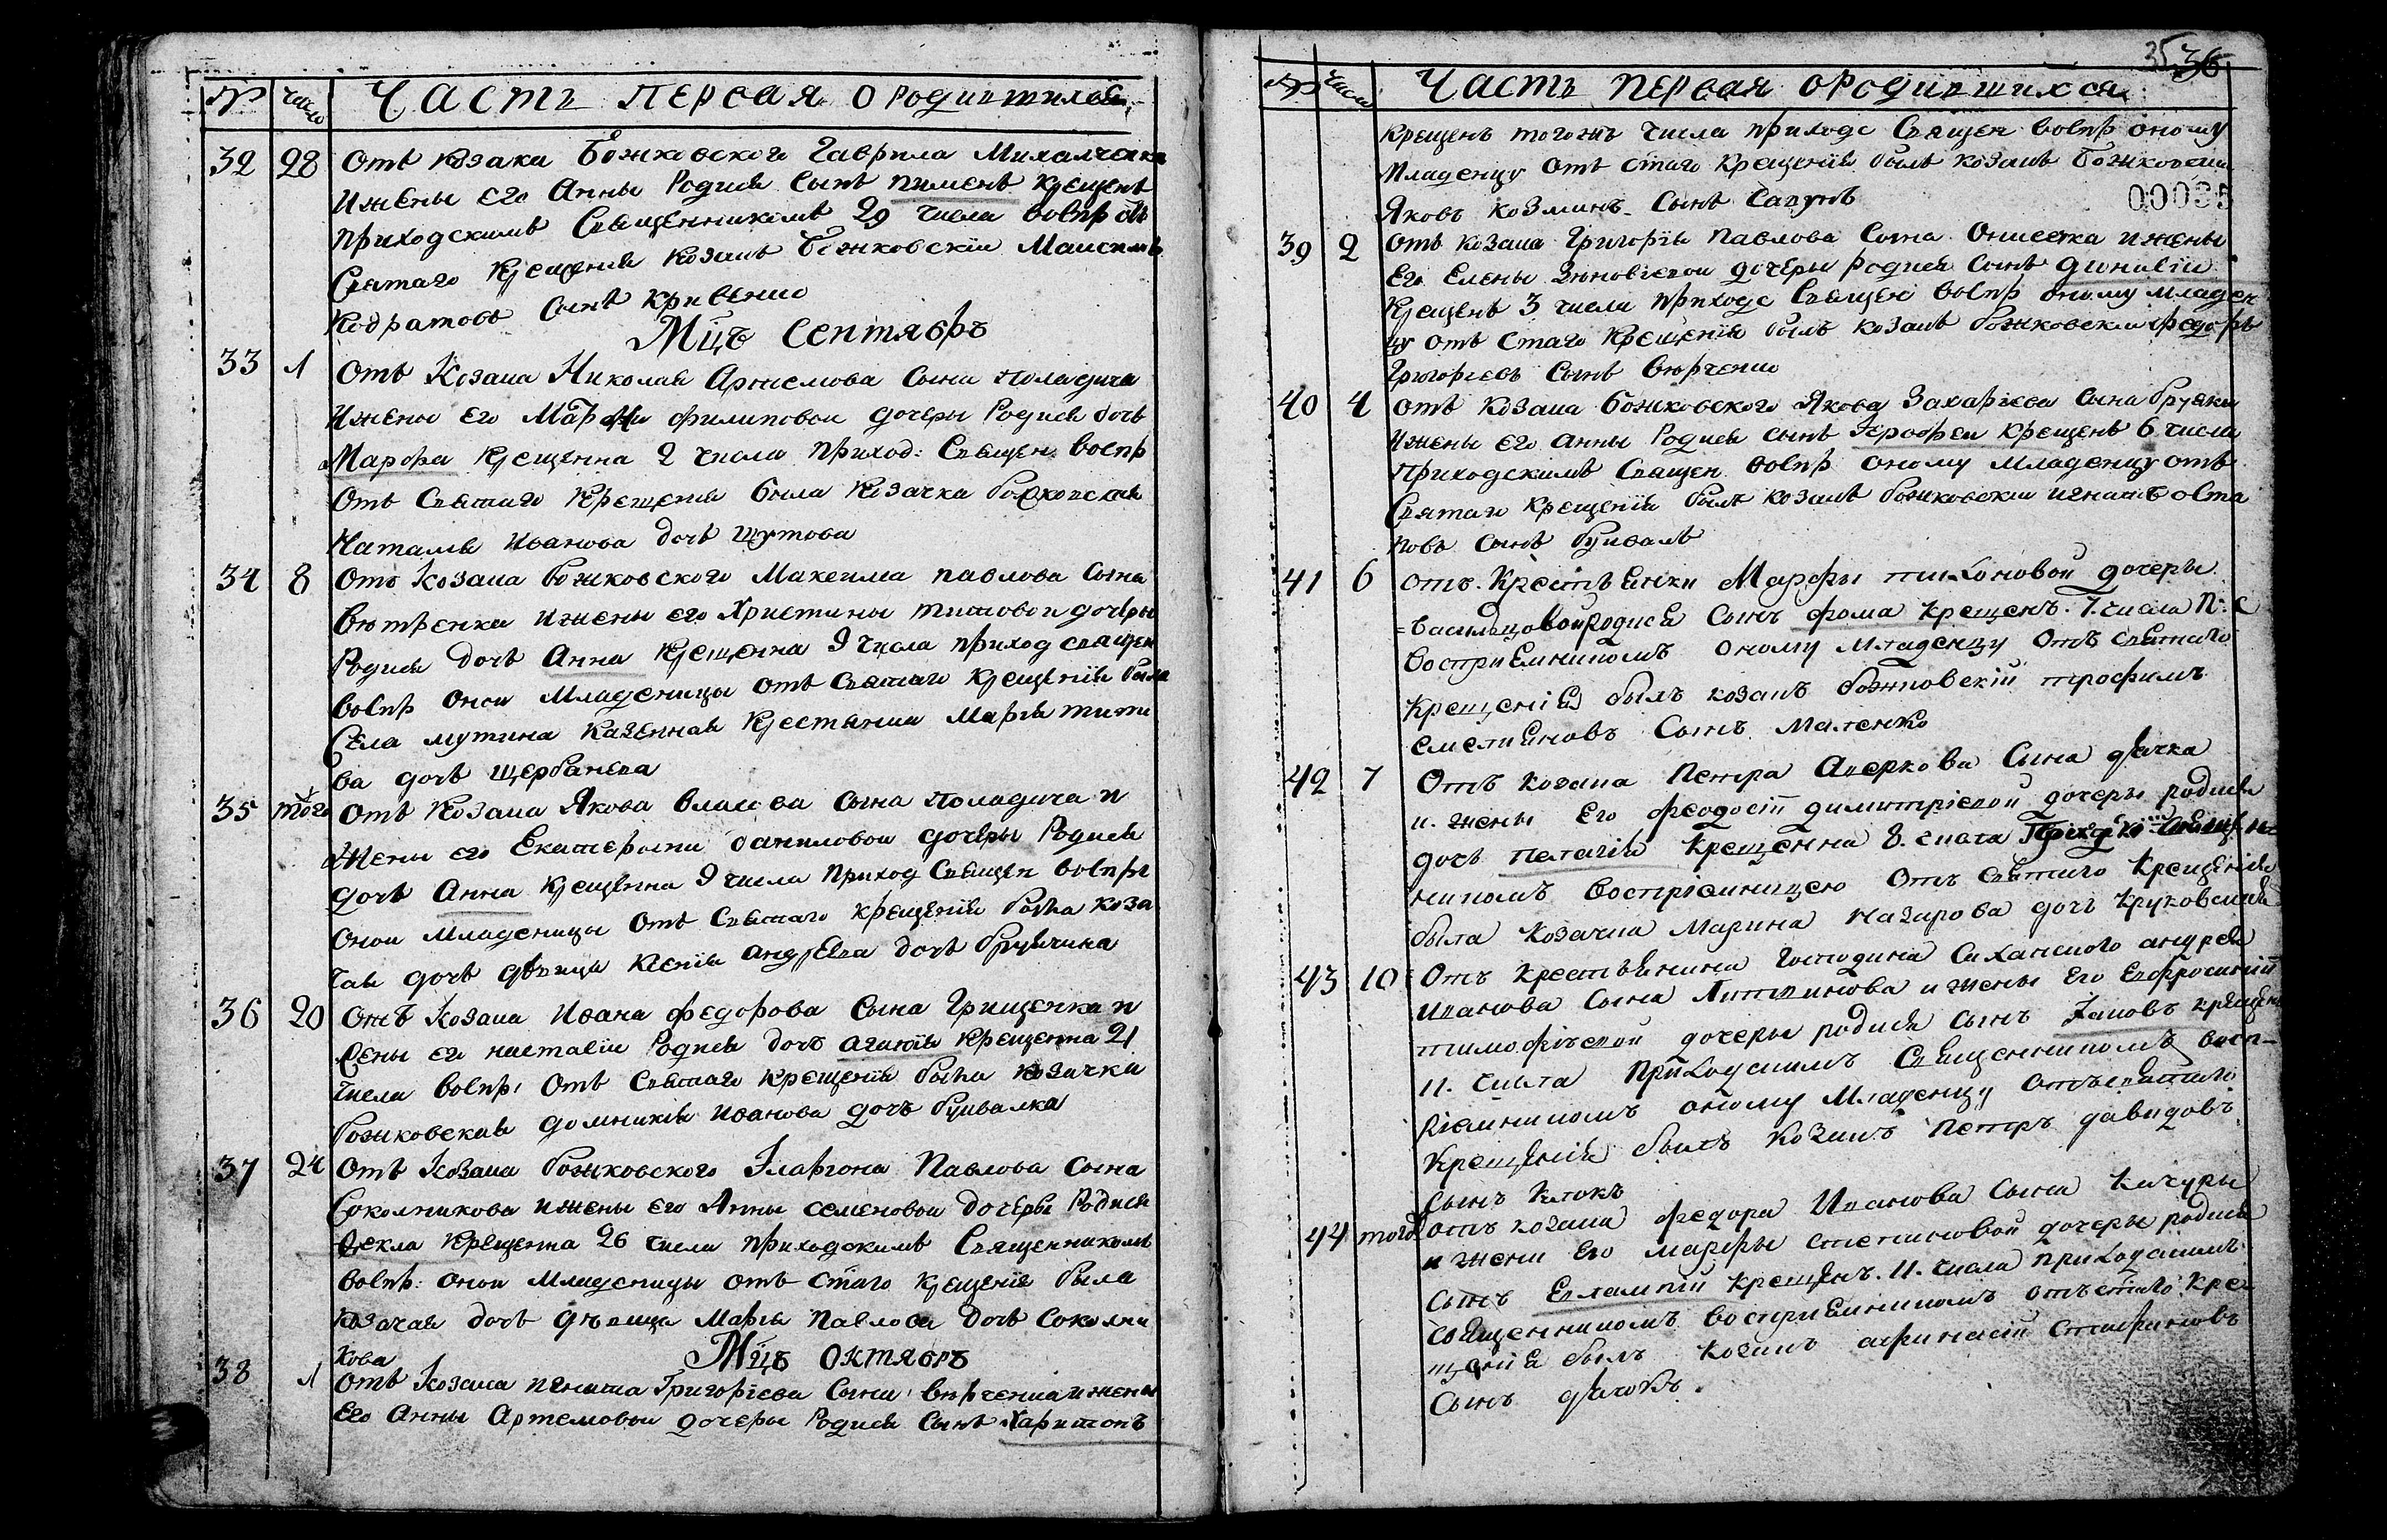 № число Часть первая о родившихся
32 28 Отъ козака Божковского Гаврила Михалченка
и жены его Анны Родися сынъ Пименъ крещенъ
приходскимъ Священникомъ 29 числа воспр отъ
Святаго Крещения козакъ Божковскiи Максимъ
Кодратовъ сынъ Кривенко
Мцъ Септябръ
33 1 Отъ Козака Николая Артемова сына
и жены его Марфи Филиповои дочеры Родися дочь
Марфа крещенна 2 числа приход: Священ: воспр
отъ Святаго Крещения была козачка Божковская
Наталия Иванова дочь Шутова
34 8 Отъ Козака Божковского Максима Павлова сына
Вютренка и жены его Христины Титовои дочеры
Родися дочь Анна крещенна 9 числа приход священ
воспр онои младеницы отъ Святаго Крещенiя была
села Мутина казенная крестянка Марiя Тито
ва дочь Щербанева
35 того Отъ Козака Якова Власова сына и
жены его Екатерыны Даниловои дочеры Родися
дочь Анна крещенна 9 числа приход Священ воспр
онои младеницы отъ Святаго крещенiя была коза
чая дочь девица Ксенiя Андреева дочь
36 20 Отъ Козака Ивана Федорова сына Грищенка и
жены его Настасiи Родися дочъ Агафiя крещенна 21
числа воспр: отъ Святаго крещенiя была козачка
Божковская Домникiя Иванова дочъ Буивалка
37 24 Отъ Козака Божковского Iларiона Павлова сына
Соколникова и жены его Анны Семеновои дочеры Родися
Фекла крещенна 26 числа приходскимъ Священникомъ
воспр: онои младеницы отъ стаго крещенiя была
козачая дочь дѣвица Марiя Павлова дочь Соколни
кова
Мцъ Октябръ
38 1 Отъ Козака Игната Григорiева сына Вюрченка и жены
его Анны Артемовои дочеры Родися сынъ Харитонъ
35 36
№ число Часть первая о родившихся
крещенъ тогожъ числа приходс Священ воспр оному
младенцу отъ стаго крещенiя былъ козакъ Божковскiи
Яковъ Козминъ сынъ Сапунъ
00035
39 2 Отъ козака Григорiя Павлова сына Онисенка и жены
его Елены Зиновiевои дочеры Родися сынъ Дионисiи
крещенъ 3 числа приходс Священ воспр оному младен
цу отъ стаго крещенiя былъ козакъ Божковскiи Федоръ
Григориевъ сынъ Вюрченко
40 4 Отъ козака Божковского Якова Захариева сына
и жены его Анны Родися сынъ Iерофеи крещенъ 6 числа
приходскимъ Священ воспр оному младенцу отъ
Святаго крещенiя былъ козакъ Божковскiи Игнатъ Оста
повъ сынъ Буивалъ
41 6 Отъ крестьянки Марфы Тихоновой дочеры
Васильцовой родися сынъ Фома крещенъ 7 числа п: с
восприемникомъ оному младенцу отъ святаго
крещенiя былъ козакъ Божковский Трофимъ
Емелияновъ сынъ Маленко
42 7 Отъ козака Петра Аверкова сына Дячка
и жены его Феодосiи Димитрiевой дочеры родися
дочь Пелагiя крещенна 8 числа
никомъ воспрiемницею отъ святаго крещенiя
была козачка Марина Назарова дочь Круковская
43 10 Отъ крестьянина господина Андрея
Иванова сына Литвинова и жены его Евфросинiи
Тимофѣевой дочеры родися сынъ Iаковъ крещенъ
11 числа приходскимъ Священникомъ восп
рiемникомъ оному младенцу отъ святаго
крещенiя былъ козакъ Петръ Давидовъ
сынъ Клокъ
44 того Отъ козака Федора Иванова сына Качуры
и жени его Марфы Степановой дочеры родися
сынъ Евлампiй крещенъ 11 числа приходскимъ
священникомъ восприемникомъ отъ стаго кре
щенiя былъ козакъ Афанасiй Стефановъ
сынъ Дячокъ.